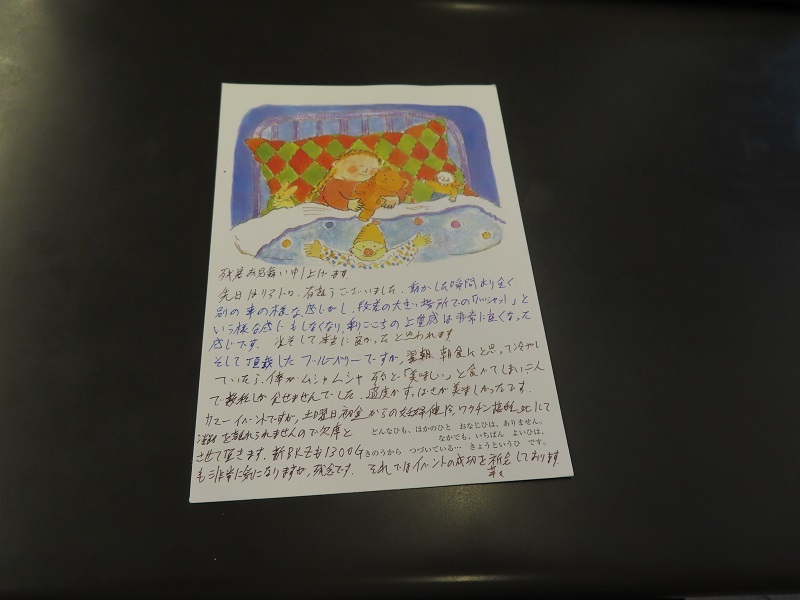 残暑お見舞い申し上げます
先日はリアトー、有難うございました。動かした瞬間より全く
別の車の様な感じがし、段差の大きい場所での「ドッシャン!」と
いう様な感じもしなくなり、乗りごこちの上質感は非常に良くなった
感じです。 して本当に良かったと思われます
そして頂戴したブルーベリーですが、翌朝 朝食にと思って冷やし
ていたら、倅がムシャムシャ 「美味しい」と食べてしまい二人
で しか 出せませんでした。適度なすっぱさが美味しかったです。
カマーイベントですが、土曜日 からの妊婦健診、ワクチン接種 にて
を離れられませんので欠席と
させて頂きます。新BRZも1300Gも
も非常に気になりますが、残念です。 それではイベントの成功を祈念しております。
草々
どんなひも、ほかのひと おなじひは、ありません。
なかでも、いちばん よいひは、
きのうから つづいている… きょうというひ です。